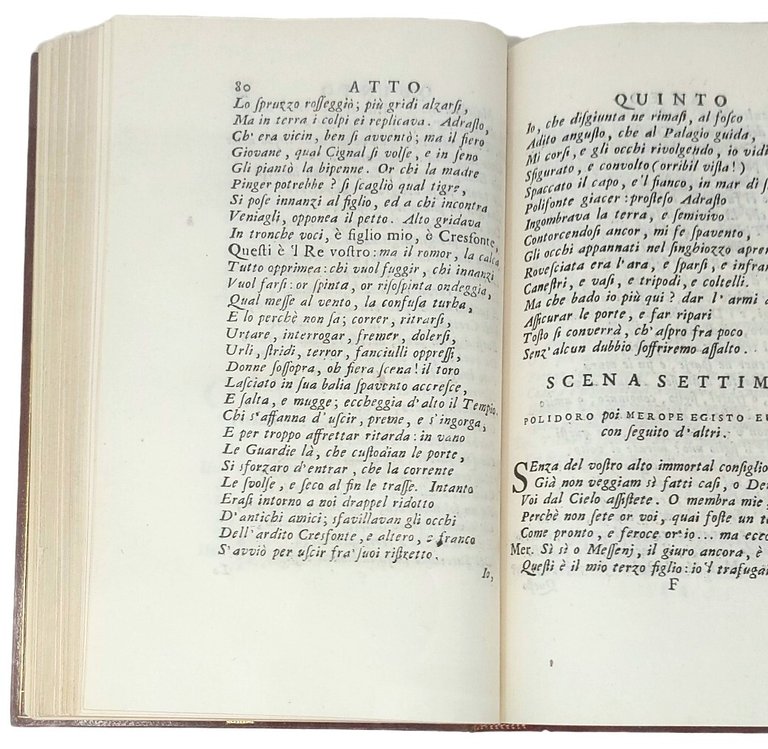 80 ATTO
Lo ſpruzzo roſſeggiò; più gridi alzarſi,
Ma in terra i colpi ei replicava. Adraſto,
Ch' era vicin, ben ſi avventò; ma il fiero
Giovane, qual Cignal ſi volſe, e in ſeno
Gli piantò la bipenne. Or chi la madre
Pinger potrebbe? ſi ſcagliò qual tigre,
Si poſe innanzi al figlio, ed a chi incontra
Veniagli, opponea il petto. Alto gridava
In tronche voci, è figlio mio, è Cresfonte,
Queſti è 'l Re voſtro: ma il romor, la calca
Tutto opprimea: chi vuol fuggir, chi innanzi
Vuol farſi: or ſpinta, or riſoſpinta ondeggia,
Qual meſſe al vento, la confuſa turba,
E lo perchè non ſa; correr, ritrarſi,
Urtare, interrogar, fremer, dolerſi,
Urli, ſtridi, terror, fanciulli oppreſſi,
Donne ſoſſopra, oh fiera ſcena! il toro
Laſciato in ſua balia ſpavento accreſce,
E ſalta, e mugge; eccheggia d'alto il Tempio.
Chi s'affanna d'uſcir, preme, e s'ingorga,
E per troppo affrettar ritarda: in vano
Le Guardie là, che cuſtodian le porte,
Si sforzaro d'entrar, che la corrente
Le ſvolſe, e ſeco al fin le traſſe. Intanto
Eraſi intorno a noi drappel ridotto
D'antichi amici; sfavillavan gli occhi
Dell'ardito Cresfonte, e altero, e franco
S'avviò per uſcir fra' ſuoi riſtretto.
Io,
QUINTO
Io, che diſgiunta ne rimaſi, al foſco
Adito anguſto, che al Palagio guida,
Mi corſi, e gli occhi rivolgendo, io vidi
Sfigurato, e convolto (orribil viſta!)
Spaccato il capo, e'l fianco, in mar di
Poliſonte giacer: proſteſo Adraſto
Ingombrava la terra, e ſemivivo
Contorcendoſi ancor, mi fe ſpavento,
Gli occhi appannati nel ſinghiozzo
Roveſciata era l'ara, e ſparſi, e
Caneſtri, e vaſi, e tripodi, e coltelli.
Ma che bado io più qui? dar l'armi
Aſſicurar le porte, e far ripari
Toſto ſi converrà, ch'aſpro fra poco
Senz'alcun dubbio ſoffriremo aſſalto.
SCENA SETTIM
POLIDORO poi MEROPE EGISTO
con ſeguito d'altri.
SEnza del voſtro alto immortal conſiglio
Già non veggiam sì fatti caſi, o
Voi dal Cielo aſſiſtete. O membra mie,
Perchè non ſete or voi, quai foſte un
Come pronto, e feroce or io... ma
Mer. Sì sì o Meſſenj, il giuro ancora, è
Queſti è il mio terzo figlio: io'l
F